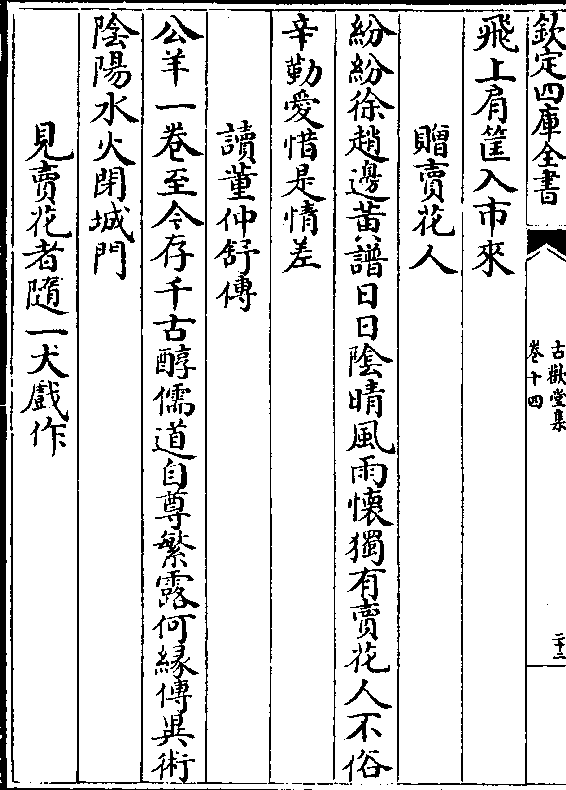 欽定四庫全書
古歡堂集
卷十四
二十二
飛上肩筐入市來
贈賣花人
紛紛徐趙邊黃譜日日陰晴風雨懷獨有賣花人不俗
辛勤愛惜是情差
讀董仲舒傳
公羊一卷至今存千古醇儒道自尊繁露何緣傳異術
陰陽水火閉城門
見賣花者隨一犬戲作